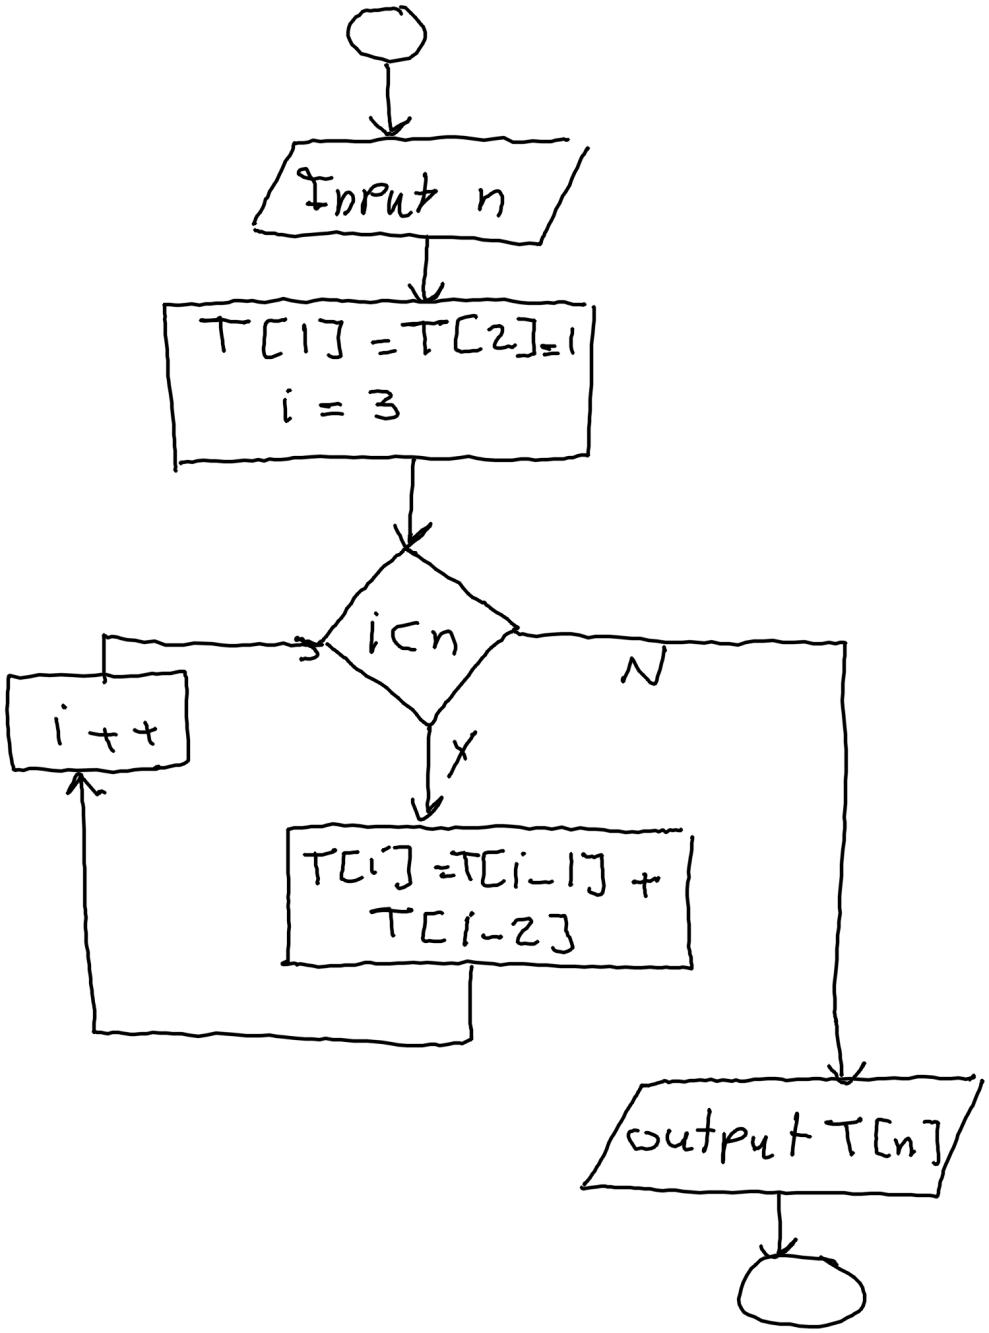 Input n
T[1] = T[2]=1
i = 3
i<n
N
Y
i++
T[i] = T[i-1] +
T[i-2]
output T[n]